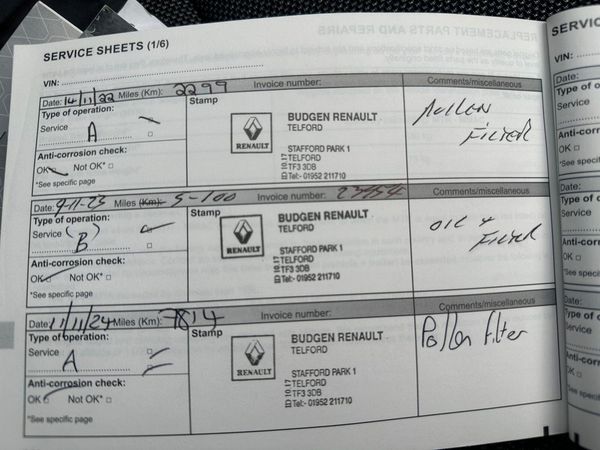 REPLACEMENT PARTS AND REPAIRS
SERVICE SHEETS (1/6)
VIN:
Date: 14/11/22 Miles (Km): 2299 Invoice number: Comments/miscellaneous
Type of operation:
Service A
Anti-corrosion check:
OK Not OK*
*See specific page
Stamp
RENAULT
BUDGEN RENAULT
TELFORD
STAFFORD PARK 1
TELFORD
TF3 3DB
Tel:- 01952 211710
POLLEN
FILTER
Date: 9-11-23 Miles (Km): 5-100 Invoice number: Comments/miscellaneous
Type of operation:
Service (B)
Anti-corrosion check:
OK Not OK*
*See specific page
Stamp
RENAULT
BUDGEN RENAULT
TELFORD
STAFFORD PARK 1
TELFORD
TF3 3DB
Tel:- 01952 211710
OIL +
FILTER
Date: 11/11/24 Miles (Km): 7814 Invoice number: Comments/miscellaneous
Type of operation:
Service A
Anti-corrosion check:
OK Not OK*
*See specific page
Stamp
RENAULT
BUDGEN RENAULT
TELFORD
STAFFORD PARK 1
TELFORD
TF3 3DB
Tel:- 01952 211710
Pollen Filter
SERVIC
VIN:
Date:
Type of o
Service
Anti-corro
OK
*See specifi
Date:
Type of o
Service
Anti-corr
OK
*See spec
Date:
Type of
Service
Anti-cor
OK
*See sp